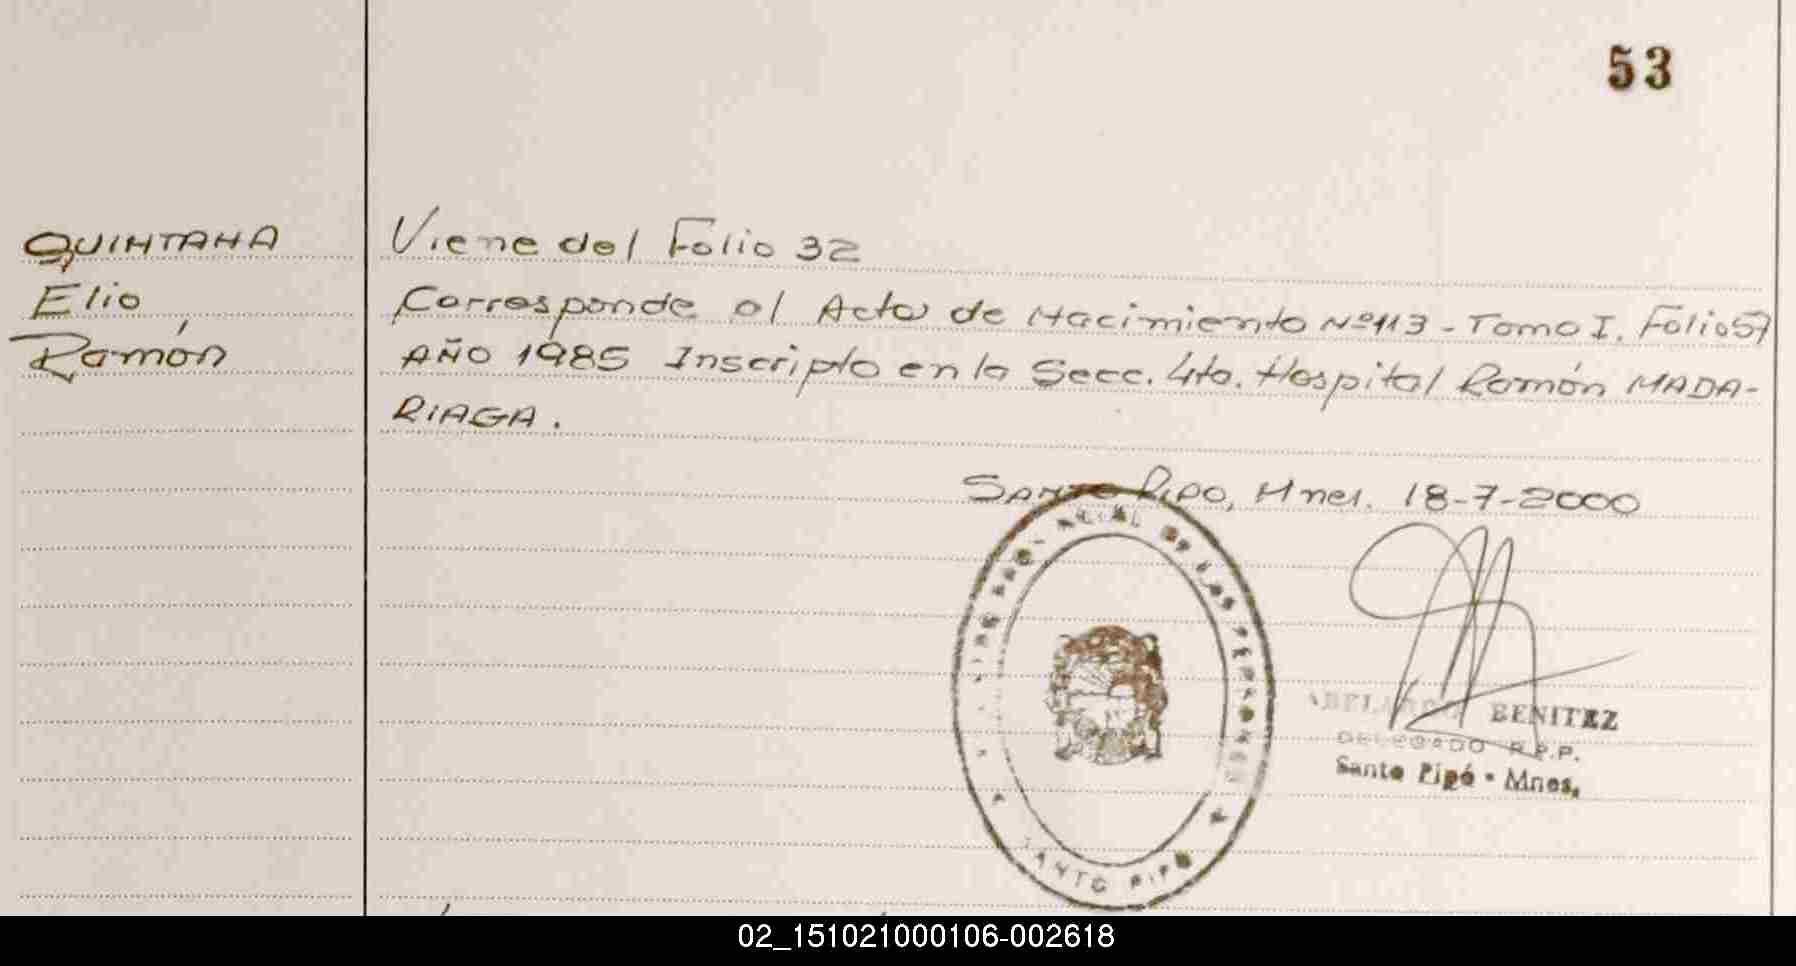 53
QUINTANA
Elio
Ramón
Viene del Folio 32
Corresponde al Acta de Nacimiento Nº 113 - Tomo I. Folio 57
AÑO 1985 Inscripto en la Secc. 4ta. Hospital Ramón MADA-
RIAGA.
SANTO PIPO, Mnes. 18-7-2000
DE LAS PERSONAS
SANTO PIPO
ABELARDO BENITEZ
DELEGADO R.P.P.
Santo Pipó - Mnes.
02_151021000106-002618